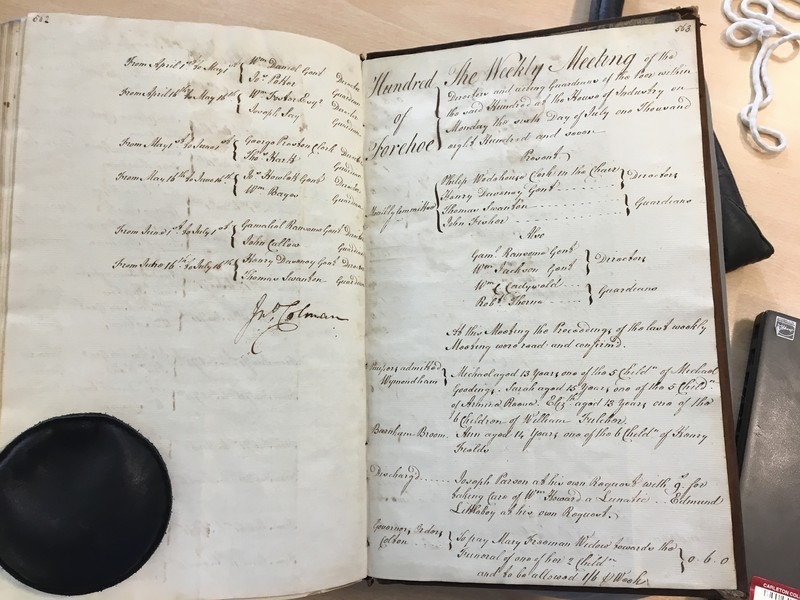 562
From April 1st to May 1st { Wm Daniel Gent Director
Jas Potter Guardian
From April 16th to May 16th { Wm Foster Esqr Director
Joseph Guardian
From May 1st to June 1st { George Preston Clerk Director
Thos Hart Guardian
From May 16th to June 16th { Jas Howlatt Gent Director
Wm Guardian
From June 1st to July 1st { Gamaliel Ransome Gent Director
John Callow Guardian
From June 16th to July 16th { Henry Daveney Gent Director
Thomas Swanton Guardian
Jno Colman
563
Hundred of Forehoe } The Weekly Meeting of the
Directors and acting Guardians of the Poor within
the said Hundred at the House of Industry on
Monday the sixth Day of July one Thousand
eight Hundred and seven
Present
Weekly Committee { Philip Wodehouse Clerk in the Chair
Henry Daveney Gent } Directors
Thomas Swanton
John Fisher } Guardians
Also
Gaml Ransome Gent
Wm Jackson Gent } Directors
Wm Cadywold
Robt Thorne } Guardians
At this Meeting the Proceedings of the last weekly
Meeting were read and confirmd.
Paupers admitted
Wymondham } Michael aged 13 Years one of the 5 Childn of Michael
Goodings. Sarah aged 15 Years one of the 5 Childn
of Eliz:th aged 13 Years one of the
6 Children of William
Barnham Broom. Ann aged 14 Years one of the 6 Childn of Henry
Dischargd Joseph Parson at his own Request with 9s. for
taking Care of Wm Howard a Lunatic ... Edmund
Littleboy at his own Request.
Governors Orders
Colton } To pay Mary Freeman Widow towards the
Funeral of one of her 2 Childn } 0-6-0
and to be allowed 1/6 a Week
CARLETON COL